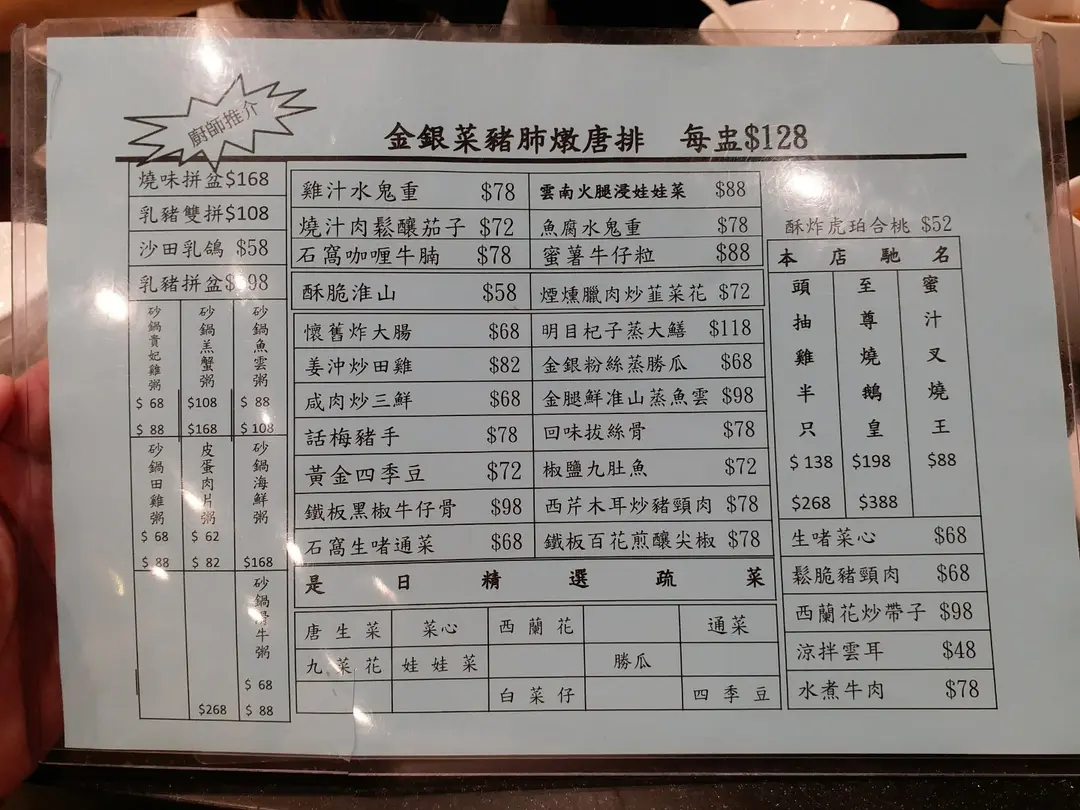 廚師推介
金銀菜豬肺燉唐排 每盅$128
燒味拼盆$168
乳豬雙拼$108
沙田乳鴿 $58
乳豬拼盆
砂鍋貴妃雞粥
$ 68
$ 88
砂鍋羔蟹粥
$108
$168
砂鍋魚雲粥
$ 88
$ 108
砂鍋田雞粥
$ 68
$ 88
皮蛋肉片粥
$ 62
$ 82
砂鍋海鮮粥
$168
$268
砂鍋滑牛粥
$ 68
$ 88
雞汁水鬼重 $78
雲南火腿浸娃娃菜 $88
燒汁肉鬆釀茄子 $72
魚腐水鬼重 $78
石窩咖喱牛腩 $78
蜜薯牛仔粒 $88
酥脆淮山 $58
煙燻臘肉炒韮菜花 $72
懷舊炸大腸 $68
明目杞子蒸大鱔 $118
姜沖炒田雞 $82
金銀粉絲蒸勝瓜 $68
咸肉炒三鮮 $68
金腿鮮准山蒸魚雲 $98
話梅豬手 $78
回味拔絲骨 $78
黃金四季豆 $72
椒鹽九肚魚 $72
鐵板黑椒牛仔骨 $98
西芹木耳炒豬頸肉 $78
石窩生啫通菜 $68
鐵板百花煎釀尖椒 $78
是日精選疏菜
唐生菜 菜心 西蘭花 通菜
九菜花 娃娃菜 勝瓜
白菜仔 四季豆
酥炸虎珀合桃 $52
本店馳名
頭抽雞半只
$ 138
$268
至尊燒鵝皇
$198
$388
蜜汁叉燒王
$88
生啫菜心 $68
鬆脆豬頸肉 $68
西蘭花炒帶子 $98
涼拌雲耳 $48
水煮牛肉 $78